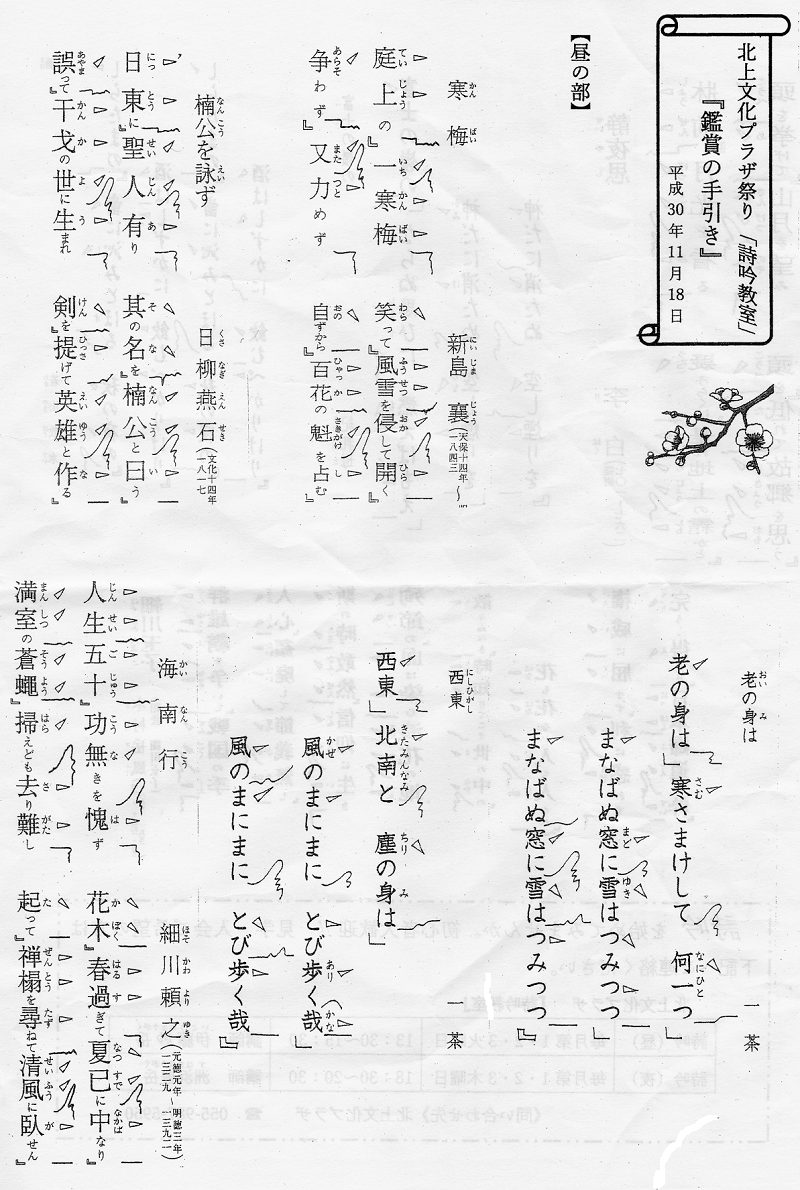 北上文化プラザ祭り「詩吟教室」
『鑑賞の手引き』
平成30年11月18日
【昼の部】
寒梅 新島 襄(天保十四年～
一八四三
庭上の『一寒梅 笑って『風雪を侵して開く
争わず『又力めず 自ずから『百花の魁を占む
楠公を詠ず 日柳燕石(文化十四年
一八一七
日東に『聖人有り 其の名を『楠公と曰う
誤って『干戈の世に生まれ 剣を『提げて英雄と作る
老の身は 一茶
老の身は」寒さまけして 何一つ
まなばぬ窓に雪はつみつつ」
まなばぬ窓に雪はつみつつ』
西東 一茶
西東」北南と 塵の身は」
風のまにまに とび歩く哉」
風のまにまに とび歩く哉』
海南行 細川頼之(元徳元年～明徳三年)
一三二九～一三九二
人生五十『功無きを愧ず 花木『春過ぎて夏已に中なり
満室の蒼蠅『掃えども去り難し 起って『禅榻を尋ねて清風に臥せん